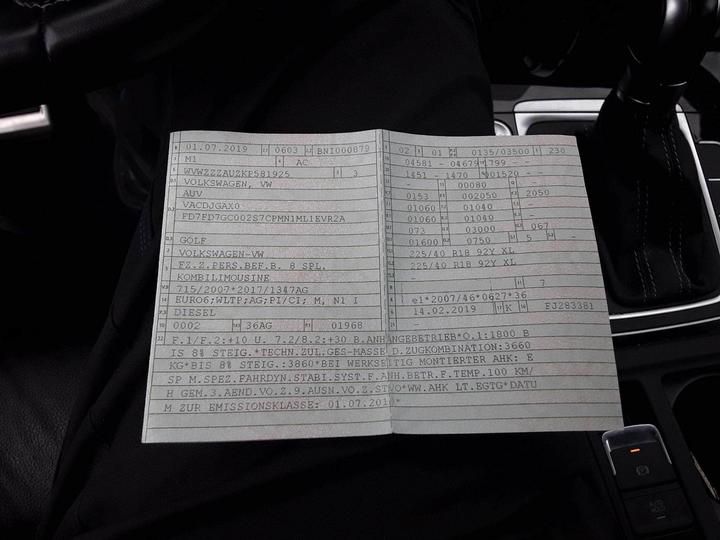 01.07.2019 0603 BNI000879
M1 AC
WVWZZZAUZKP581925 3
VOLKSWAGEN, VW
AUV
VACDJGAX0
FD7FD7GC002S7CPMN1ML1EVR2A
GOLF
VOLKSWAGEN-VW
FZ.Z.PERS.BEF.B. 8 SPL.
KOMBILIMOUSINE
715/2007*2017/1347AG
EURO6;WLTP;AG;PI/CI; M, N1 I
DIESEL
0002 36AG 01968
02 01 0135/03500 230
04581 - 04679 1799 - -
1451 - 1470 001520 - -
- 00080 -
0153 002050 2050
01060 01040 -
01060 01040 -
073 03000 067
01600 0750 5 -
225/40 R18 92Y XL
225/40 R18 92Y XL
-
- 7
e1*2007/46*0627*36
14.02.2019 K FJ283381
-
F.1/F.2:+10 U. 7.2/8.2:+30 B.ANHANGEBETRIEB*O.1:1800 B
IS 8% STEIG.*TECHN.ZUL.GES-MASSE D.ZUGKOMBINATION:3660
KG*BIS 8% STEIG.:3860*BEI WERKSEITIG MONTIERTER AHK: E
SP M.SPEZ.FAHRDYN.STABI.SYST.F.ANH.BETR.F.TEMP.100 KM/
H GEM.3.AEND.VO.Z.9.AUSN.VO.Z.STVO*WW.AHK LT.EGTG*DATU
M ZUR EMISSIONSKLASSE: 01.07.2019*